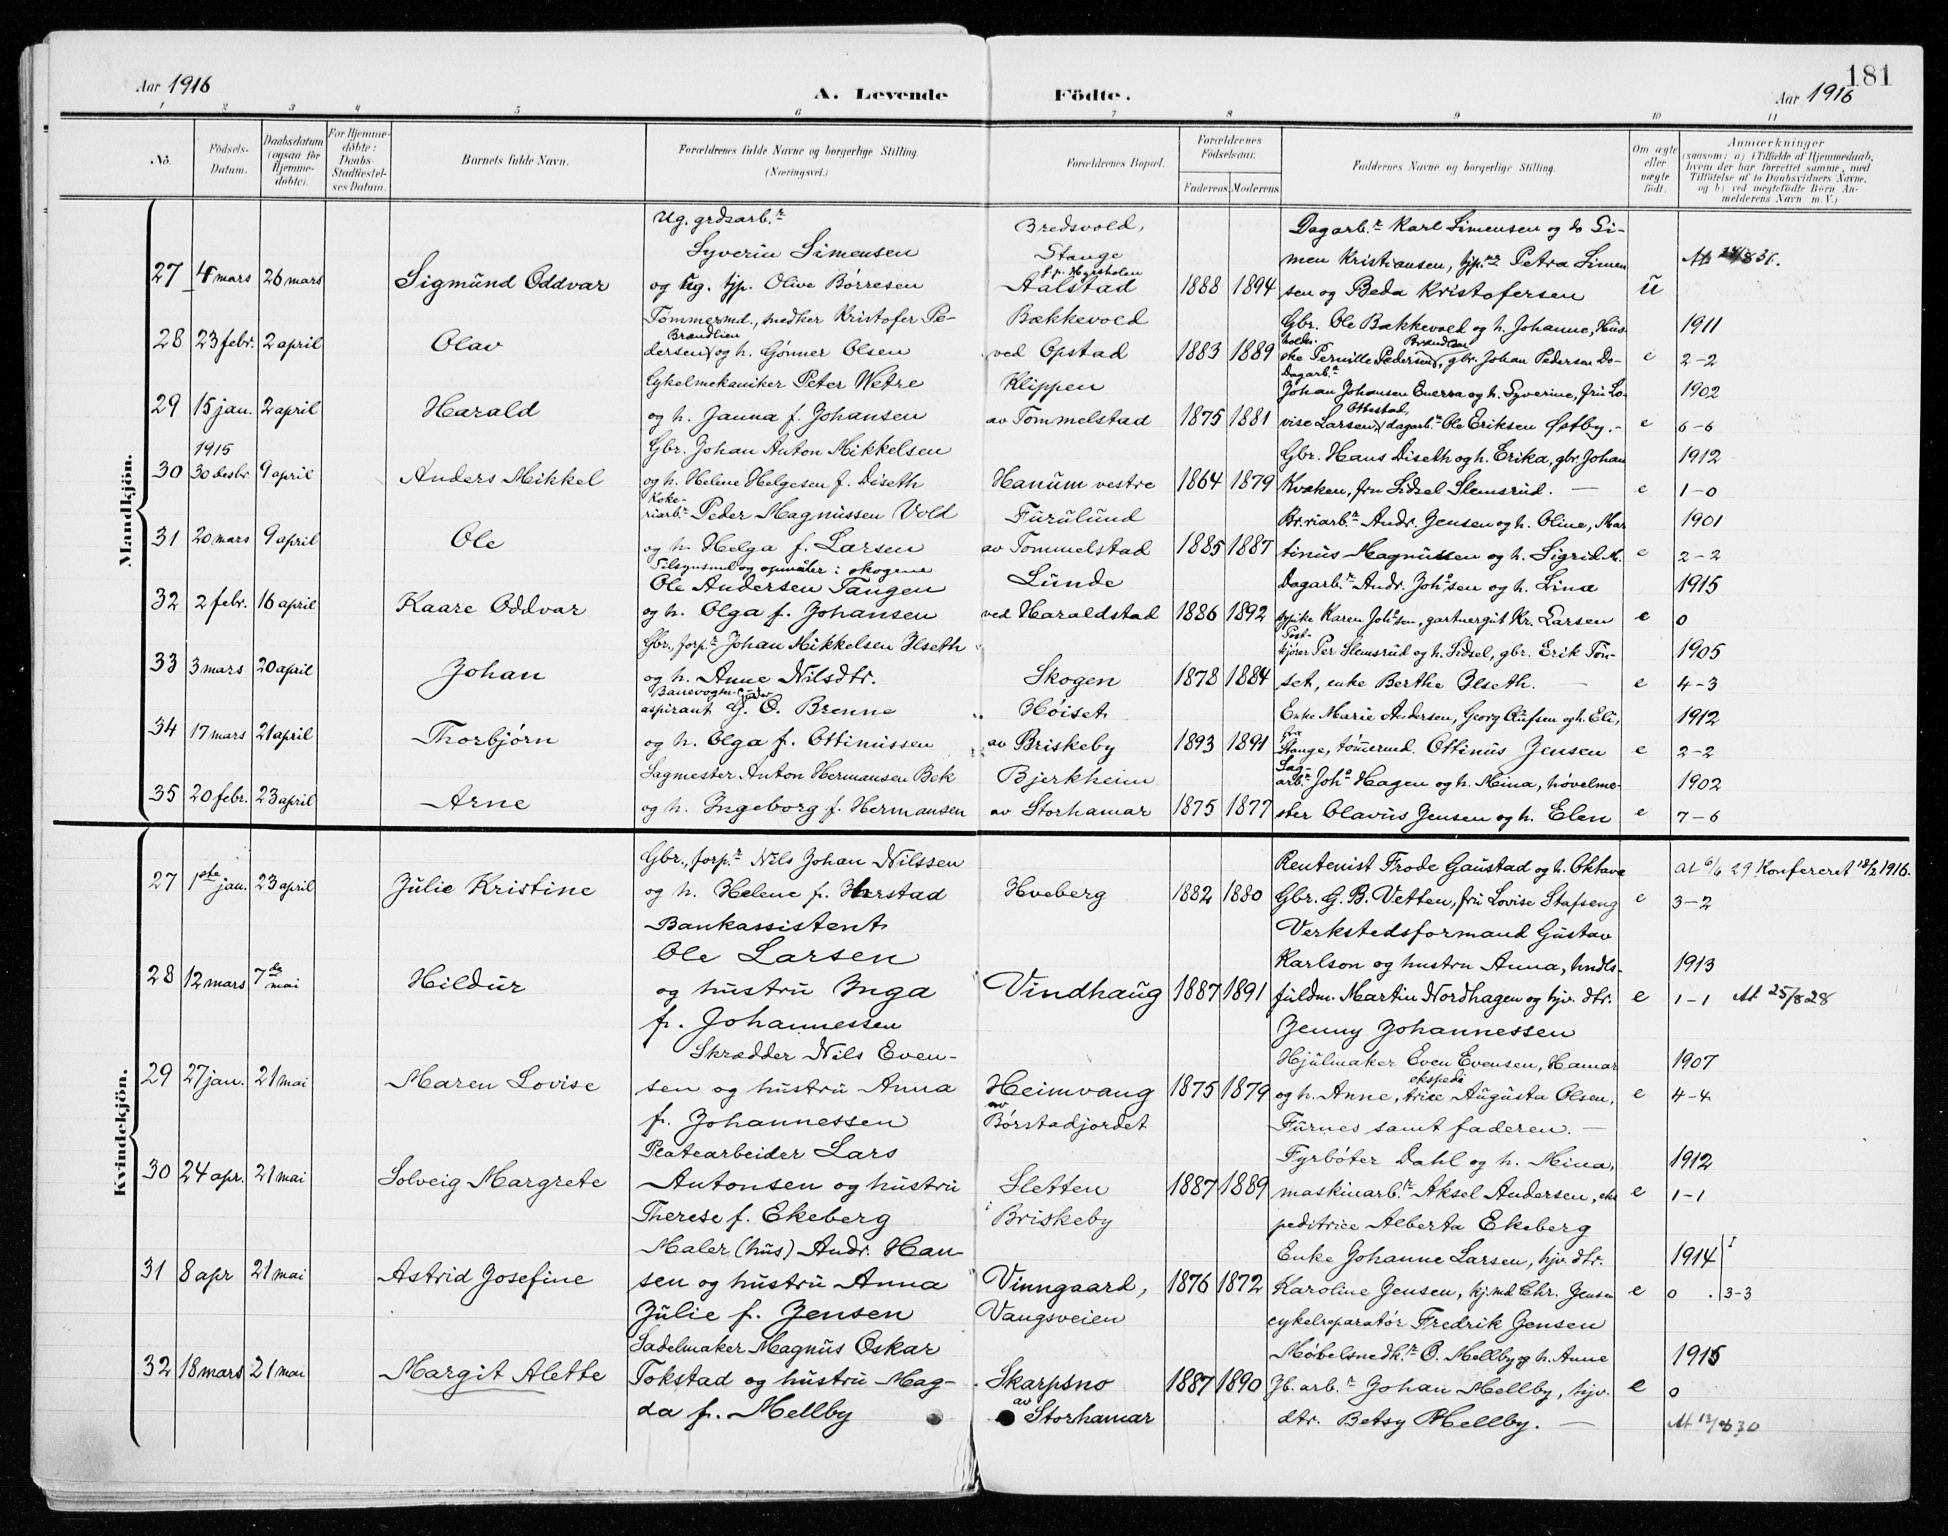 181
Aar 1916
A. Levende
Födte.
Aar 1916
1 2 3 4 5 6 7 8 9 10 11
No.
Födsels-
Datum.
Daabsdatum
(ogsaa for
Hjemme-
döbte).
For Hjemme-
döbte:
Daabs-
Stadfæstel-
ses Datum.
Barnets fulde Navn.
Forældrenes fulde Navne og borgerlige Stilling.
(Næringsvei.)
Forældrenes Bopæl.
Forældrenes
Födselsaar.
Faderens. Moderens.
Faddernes Navne og borgerlige Stilling.
Om ægte
eller
uægte
födt.
Anmærkninger
(saasom: a) i Tilfælde af Hjemmedaab,
hvem der har forrettet samme, med
Tilföielse af to Daabsvidners Navne,
og b) ved uegtefödte Börn An-
melderens Navn m. V.)
Mandkjön.
Ug. grdsarb.r
Bredsvold,
Dagarb.r Karl Simensen og do Si-
Syverin Simensen
Stange
men Kristiansen, hjp. Petra Simen
27 4 mars 26 mars Sigmund Oddvar og ug. tjp. Olive Børresen Aalstad 1888 1894 sen og Beda Kristofersen u
Tømmermd., snedker Kristofer Pe- Bækkevold Gbr. Ole Bækkevold og h. Johanne, Hus- 1911
Brændlien
28 23 febr. 2 april Olav dersen og h. Gunner Olsen ved Opstad 1883 1889 Pernille Pedersen, gbr. Johan Pedersen Do- e 2-2
Cykelmekaniker Peter Wetre Klippen Johan Johansen Enerra og h. Syverine, fru Lo- 1902
29 15 jan. 2 april Harald og h. Janna f. Johansen av Tommelstad 1875 1881 vise Larsen, dagarb.r Ole Eriksen Østby. e 6-6
1915 Gbr. Johan Anton Mikkelsen Gbr. Hans Diseth og h. Erika, gbr. Johan 1912
30 30 desbr. 9 april Anders Mikkel og h. Helene Helgesen f. Diseth Hanum vestre 1864 1879 Kvaken, fru Sidsel Slemsrud. — e 1-0
Koke-
riarb.r Peder Magnussen Vold Furulund Br.riarb.r Andr. Jensen og h. Oline, Mar 1901
31 20 mars 9 april Ole og h. Helga f. Larsen av Tommelstad 1885 1887 tinus Magnussen og h. Sigrid M. e 2-2
Tilsynsmd og opmåler i skogene
Ole Andersen Tangen Lunde Dagarb.r Andr. Joh.sen og h. Lina 1915
32 2 febr. 16 april Kaare Oddvar og h. Olga f. Johansen ved Haraldstad 1886 1892 pike Karen Joh.sen, gartnergut Kr. Larsen e 0
Gbr., forp.r Johan Mikkelsen Ilseth Post-
kjører Per Slemsrud og h. Sidsel, gbr. Erik Tøn- 1905
33 3 mars 20 april Johan og h. Anne Nilsdtr. Skogen 1878 1884 set, enke Berthe Ilseth. — e 4-3
Banevogter-
aspirant G. O. Brenne Høiset Enke Marie Andersen, Georg Olufsen og h. Eli, 1912
34 17 mars 21 april Thorbjørn og h. Olga f. Ottinussen av Briskeby 1893 1891 Stange, tømermd. Ottinus Jensen e 2-2
Sagmester Anton Hermansen Bek Bjerkheim Sag-
arb.r Joh. Hagen og h. Mina, høvelme- 1902
35 20 febr. 23 april Arne og h. Ingeborg f. Hermansen av Storhamar 1875 1877 ster Olavus Jensen og h. Elen e 7-6
Kvindekjön.
Gbr., forp.r Nils Johan Nilssen Rentenist Frode Gaustad og h. Oktave At 6/6 29 Konfereret 18/2 1916.
27 1ste jan. 23 april Julie Kristine og h. Helene f. Herstad Hveberg 1882 1880 Gbr. G. B. Vetten, fru Lovise Stafseng e 3-2
Bankassistent Verkstedsformand Gustav
Ole Larsen Karlson og hustru Anna, hndls- 1913
28 12 mars 7de mai Hildur og hustru Inga Vindhaug 1887 1891 fuldm. Martin Nordhagen og hjv. dtr. e 1-1 At 25/8 28
f. Johannessen Jenny Johannessen
Skrædder Nils Even- Hjulmaker Even Evensen, Hamar 1907
ekspedi
29 27 jan. 21 mai Maren Lovise sen og hustru Anna Heimvang 1875 1879 og h. Anne, trise Augusta Olsen, e 4-4
f. Johannessen av Børstadjordet Furnes samt faderen. —
Platearbeider Lars Fyrbøter Dahl og h. Mina, 1912
30 24 apr. 21 mai Solveig Margrete Antonsen og hustru Sletten 1887 1889 maskinarb.r Aksel Andersen, eks e 1-1
Therese f. Ekeberg i Briskeby peditrice Alberta Ekeberg
Maler (hus) Andr. Han- Enke Johanne Larsen, hjv. dtr. 1914 I
31 8 apr 21 mai Astrid Josefine sen og hustru Anna Vinngaard, 1876 1872 Karoline Jensen, kj.md Chr. Jensen e 0 3-3
Julie f. Jensen Vangsveien cykelreparatør Fredrik Jensen
Sadelmaker Magnus Oskar Møbelsnedk.r O. Mellby og h. Anne 1915
32 18 mars 21 mai Margit Alette Tokstad og hustru Mag- Skarpsno 1887 1890 Jb. arb.r Johan Mellby, hjv. e 0
da f. Mellby av Storhamar dtr. Betsy Mellby. —